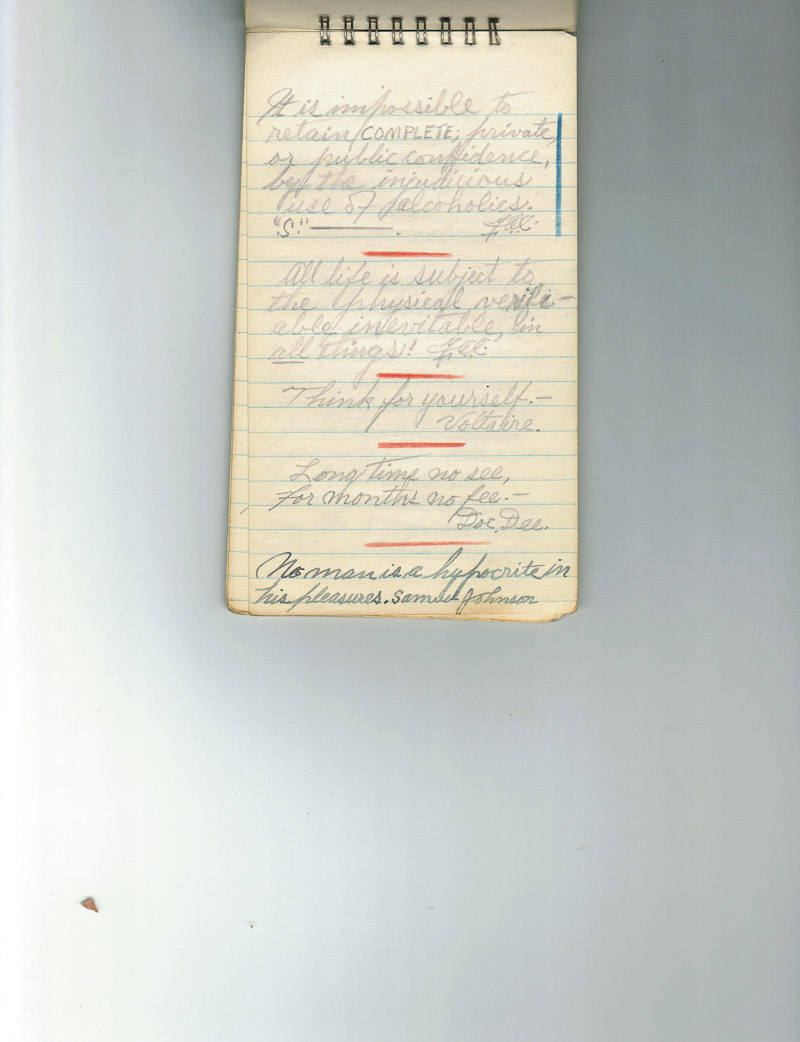 It is impossible to
retain COMPLETE; private,
or public confidence,
by the injudicious
use of alcoholics.
"S."
All life is subject to
the physical verifi-
able inevitable, in
all things!
Think for yourself.—
Voltaire.
Long time no see,
for months no fee.—
Doc. Dee.
No man is a hypocrite in
his pleasures. Samuel Johnson